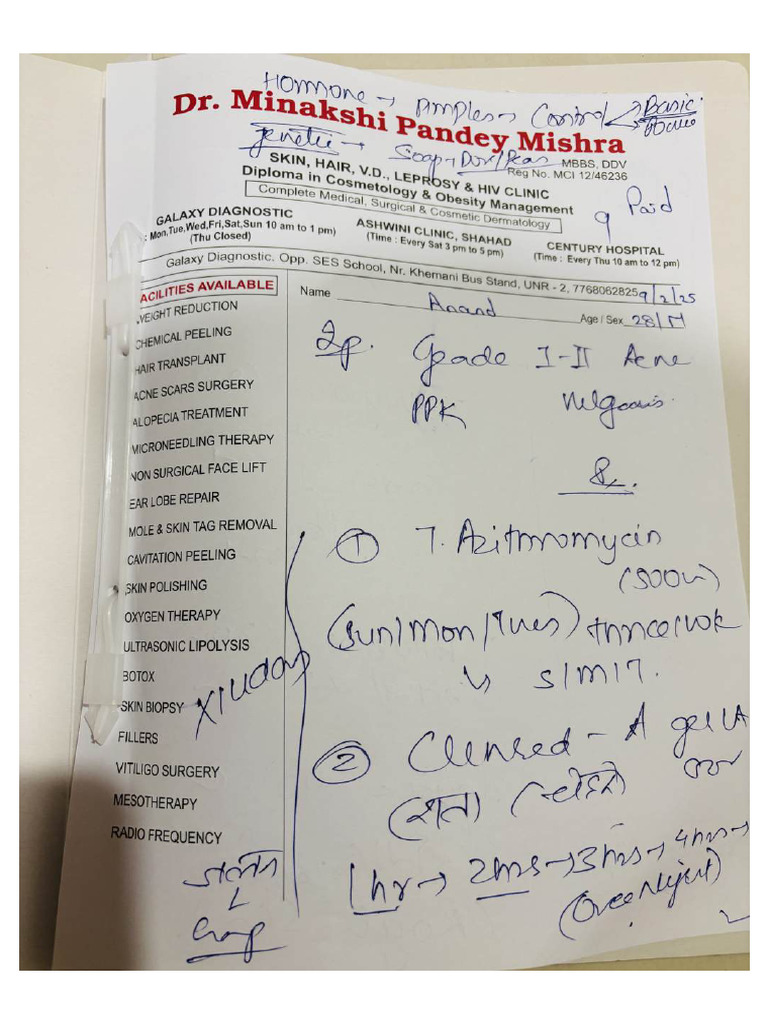 Hormone → Pimples → Control → Basic
Dr. Minakshi Pandey Mishra
Genetic → Soap → Dov/Pears
MBBS, DDV
SKIN, HAIR, V.D., LEPROSY & HIV CLINIC
Reg No. MCI 12/46236
Diploma in Cosmetology & Obesity Management
Complete Medical, Surgical & Cosmetic Dermatology
Paid
GALAXY DIAGNOSTIC
: Mon,Tue,Wed,Fri,Sat,Sun 10 am to 1 pm)
(Thu Closed)
ASHWINI CLINIC, SHAHAD
(Time : Every Sat 3 pm to 5 pm)
CENTURY HOSPITAL
(Time : Every Thu 10 am to 12 pm)
Galaxy Diagnostic, Opp. SES School, Nr. Khemani Bus Stand, UNR - 2, 7768062825
9/2/25
Name Anand
Age / Sex 28/M
ACILITIES AVAILABLE
WEIGHT REDUCTION
CHEMICAL PEELING
HAIR TRANSPLANT
ACNE SCARS SURGERY
ALOPECIA TREATMENT
MICRONEEDLING THERAPY
NON SURGICAL FACE LIFT
EAR LOBE REPAIR
MOLE & SKIN TAG REMOVAL
CAVITATION PEELING
SKIN POLISHING
OXYGEN THERAPY
ULTRASONIC LIPOLYSIS
BOTOX
SKIN BIOPSY
FILLERS
VITILIGO SURGERY
MESOTHERAPY
RADIO FREQUENCY
Grade I-II Acne
PPK
① T. Azithromycin
(500
(Sun/Mon/Tues) thrice/wk
↳ S/M/T.
x14days
② Clensed - A gel LA
(रात)
1 hr → 2hrs → 3hrs → 4hrs →
(Overnight)
जलन